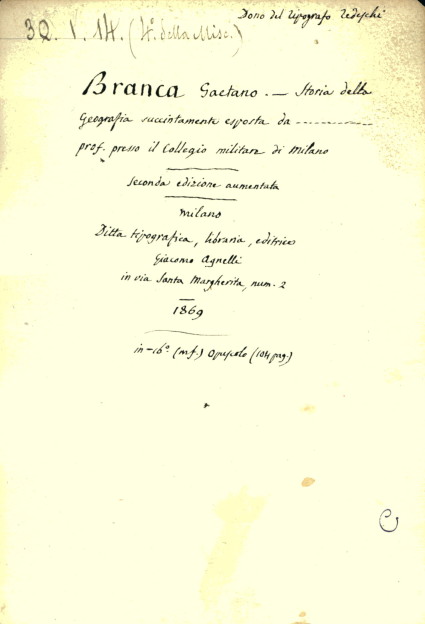 Dono del tipografo Tedeschi
30. 1. 14. (4º. della Misc.)
Branca Gaetano. — Storia della
Geografia succintamente esposta da ------------
prof. presso il Collegio militare di Milano
seconda edizione aumentata
Milano
Ditta tipografica, libraria, editrice
Giacomo Agnelli
in via Santa Margherita, num. 2
1869
in-16º (m.f.) Opuscolo (104 pag.)
C